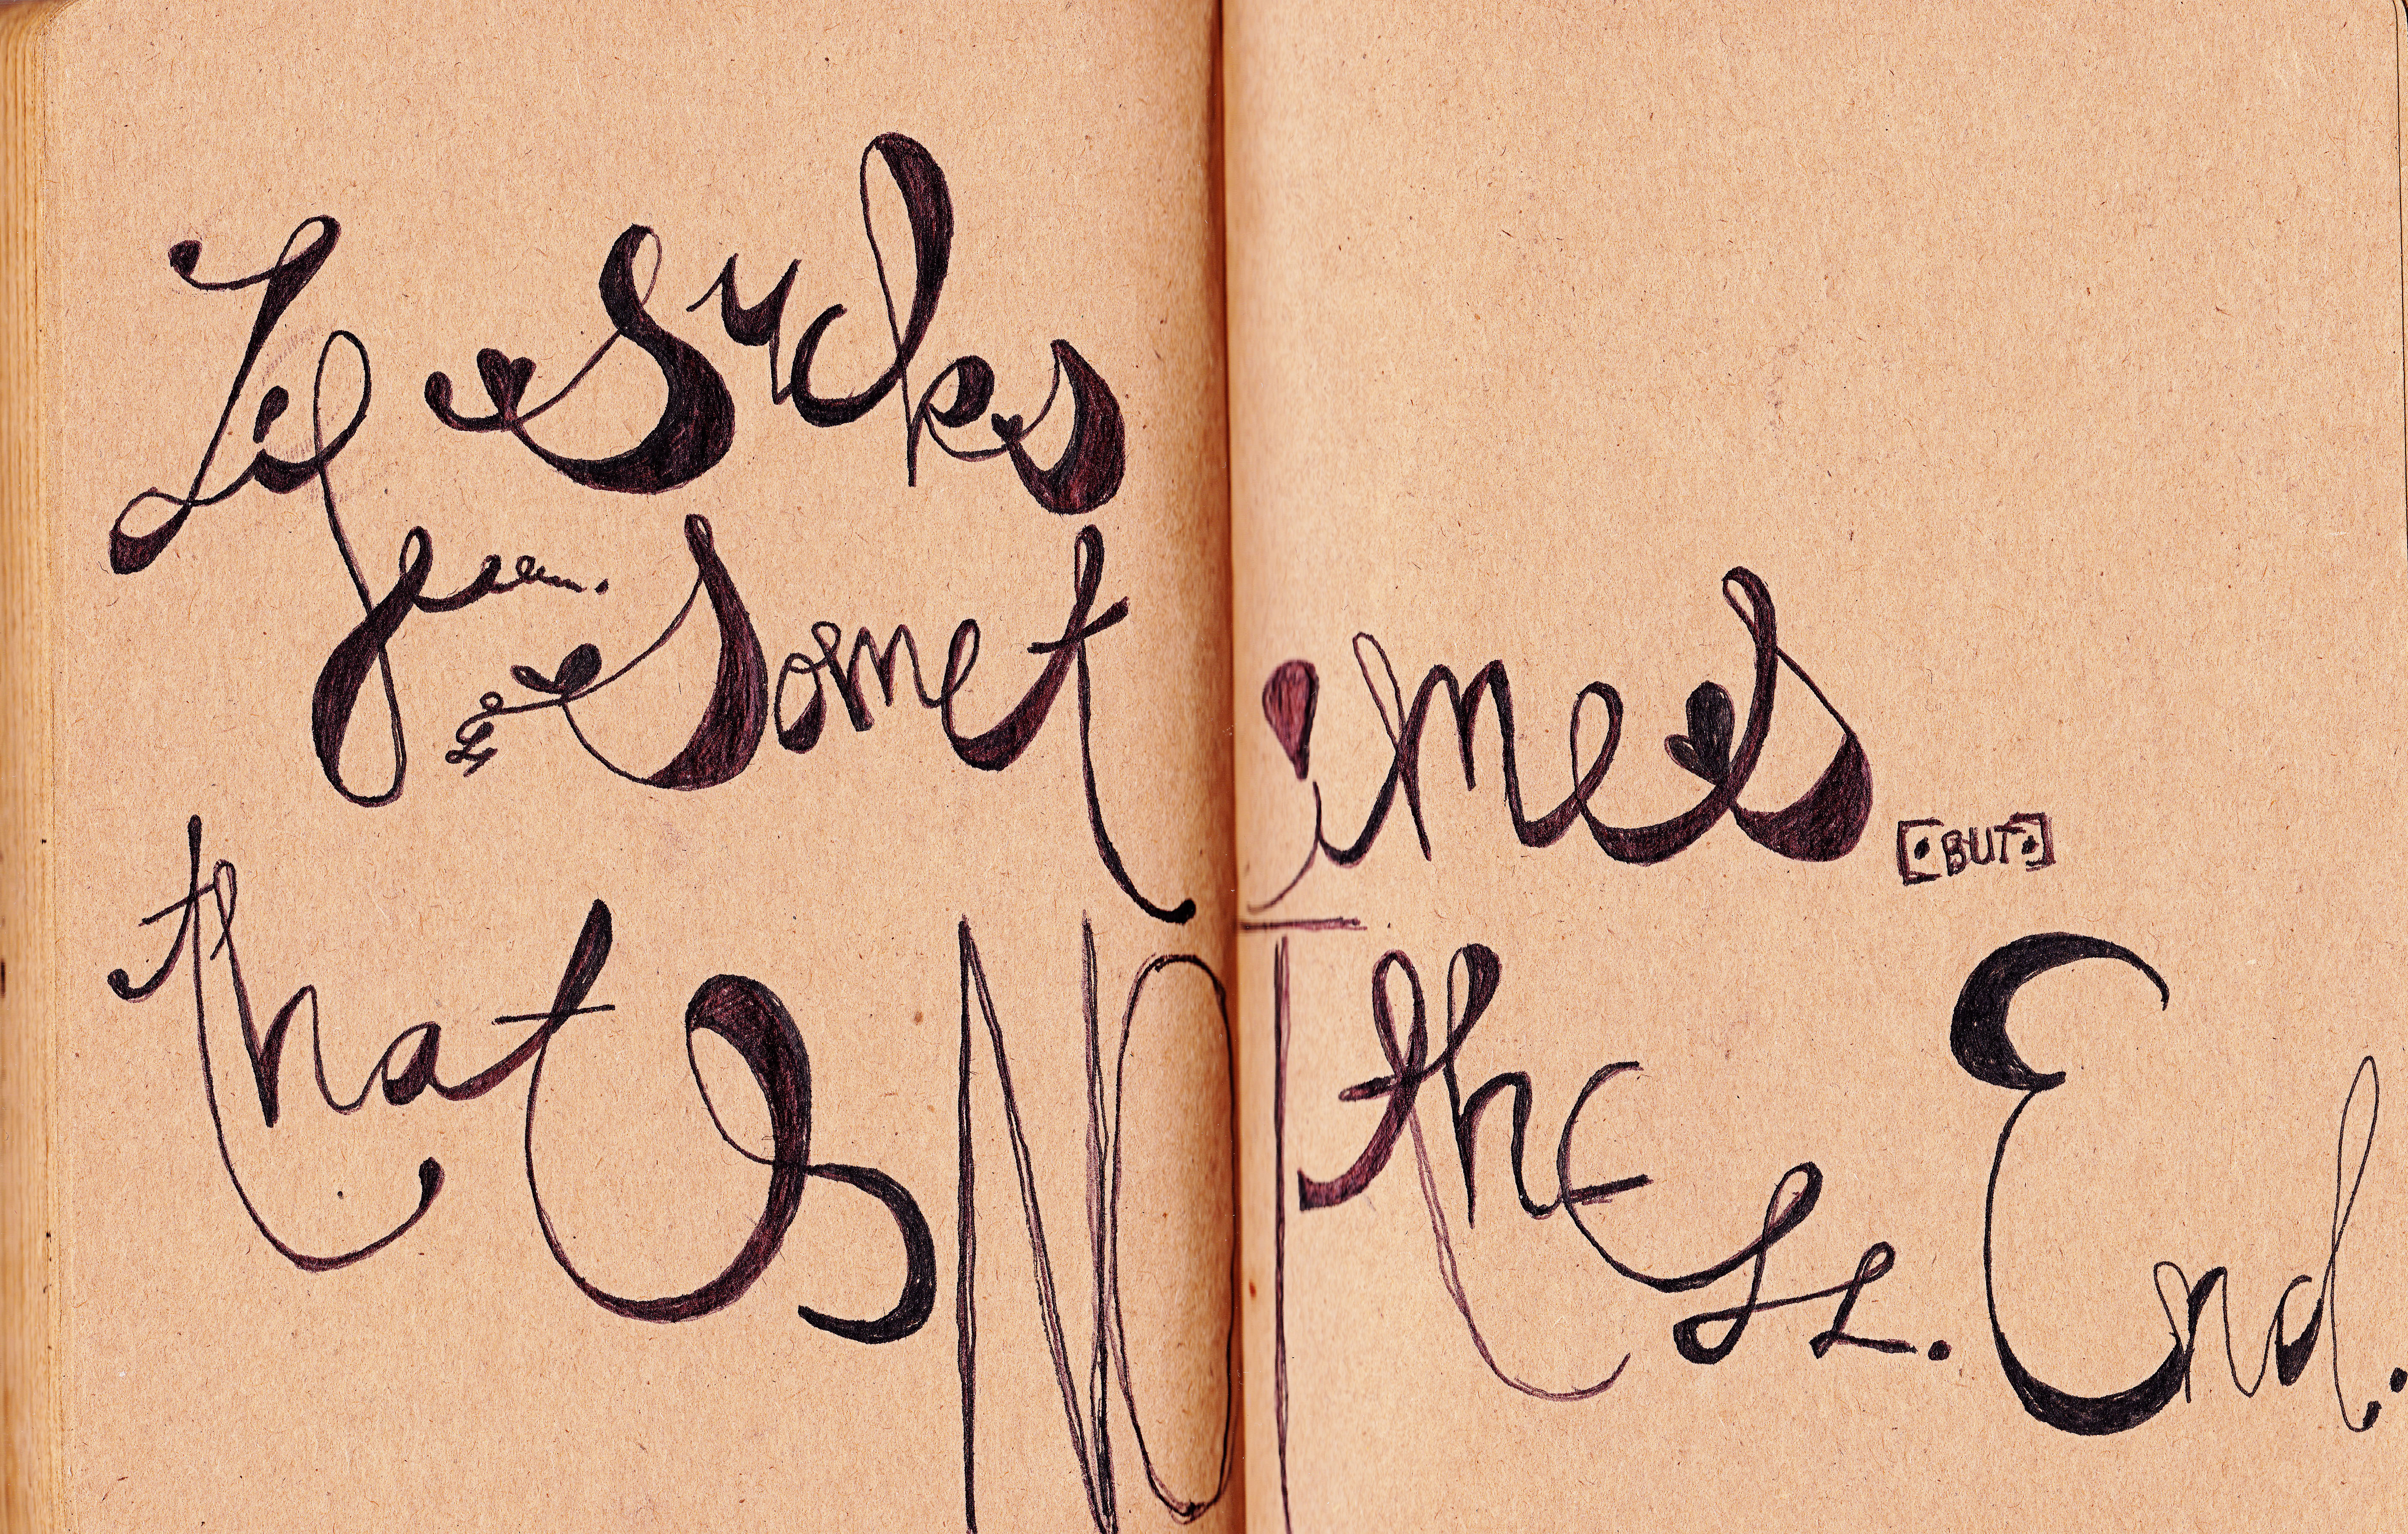 Life sucks
sometimes.
[•BUT•]
that is NOT the End.